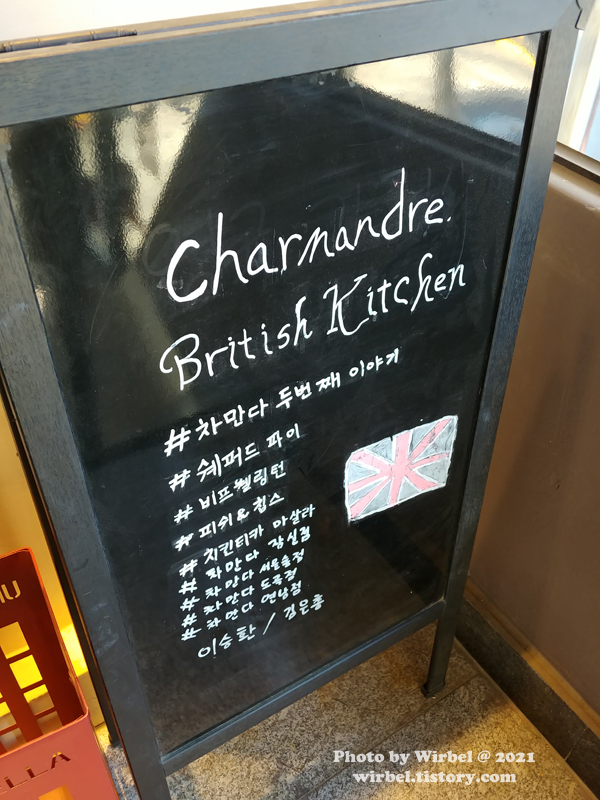 Charmandre.
British Kitchen
# 차만다 두번째 이야기
# 쉐퍼드 파이
# 비프웰링턴
# 피쉬&칩스
# 치킨티카 마살라
# 차만다 잠실점
# 차만다 서울숲점
# 차만다 도곡점
# 차만다 연남점
이승환 / 김은홍
Photo by Wirbel @ 2021
wirbel.tistory.com